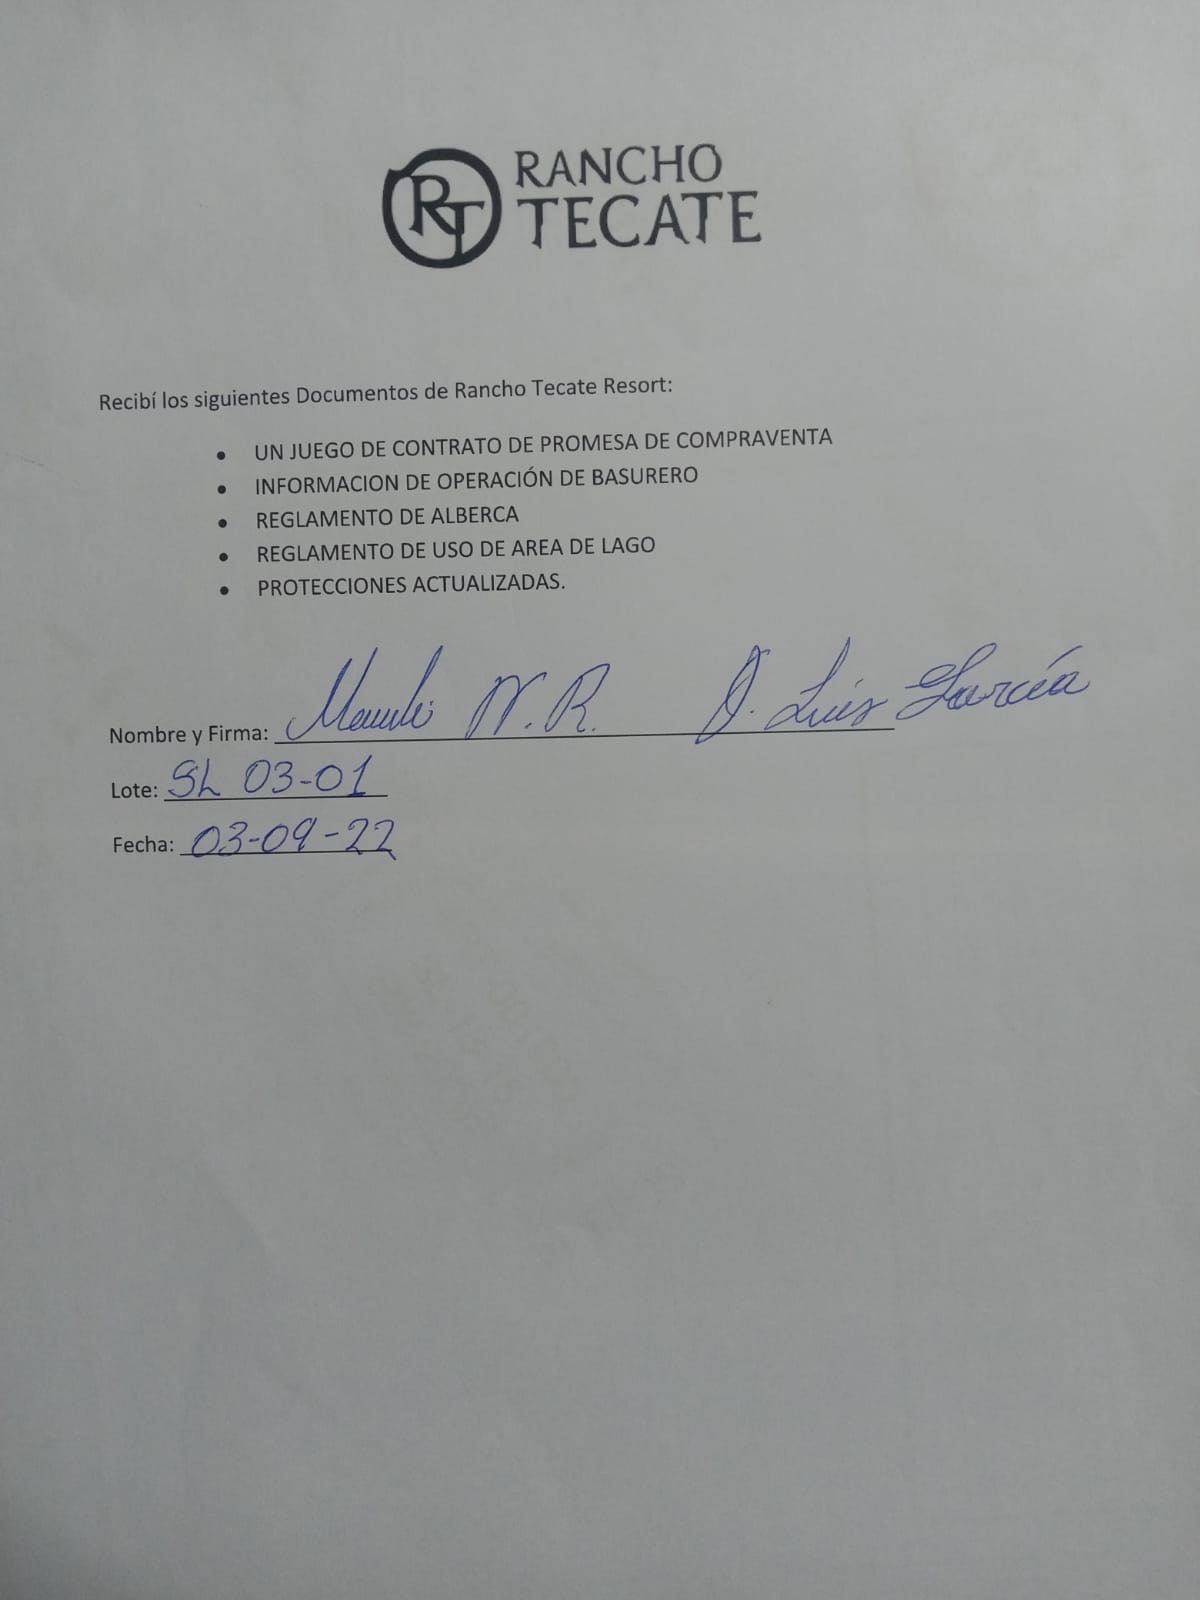 RT RANCHO
TECATE
Recibí los siguientes Documentos de Rancho Tecate Resort:
• UN JUEGO DE CONTRATO DE PROMESA DE COMPRAVENTA
• INFORMACION DE OPERACIÓN DE BASURERO
• REGLAMENTO DE ALBERCA
• REGLAMENTO DE USO DE AREA DE LAGO
• PROTECCIONES ACTUALIZADAS.
Nombre y Firma: N.R. J. Luis García
Lote: SL 03-01
Fecha: 03-09-22